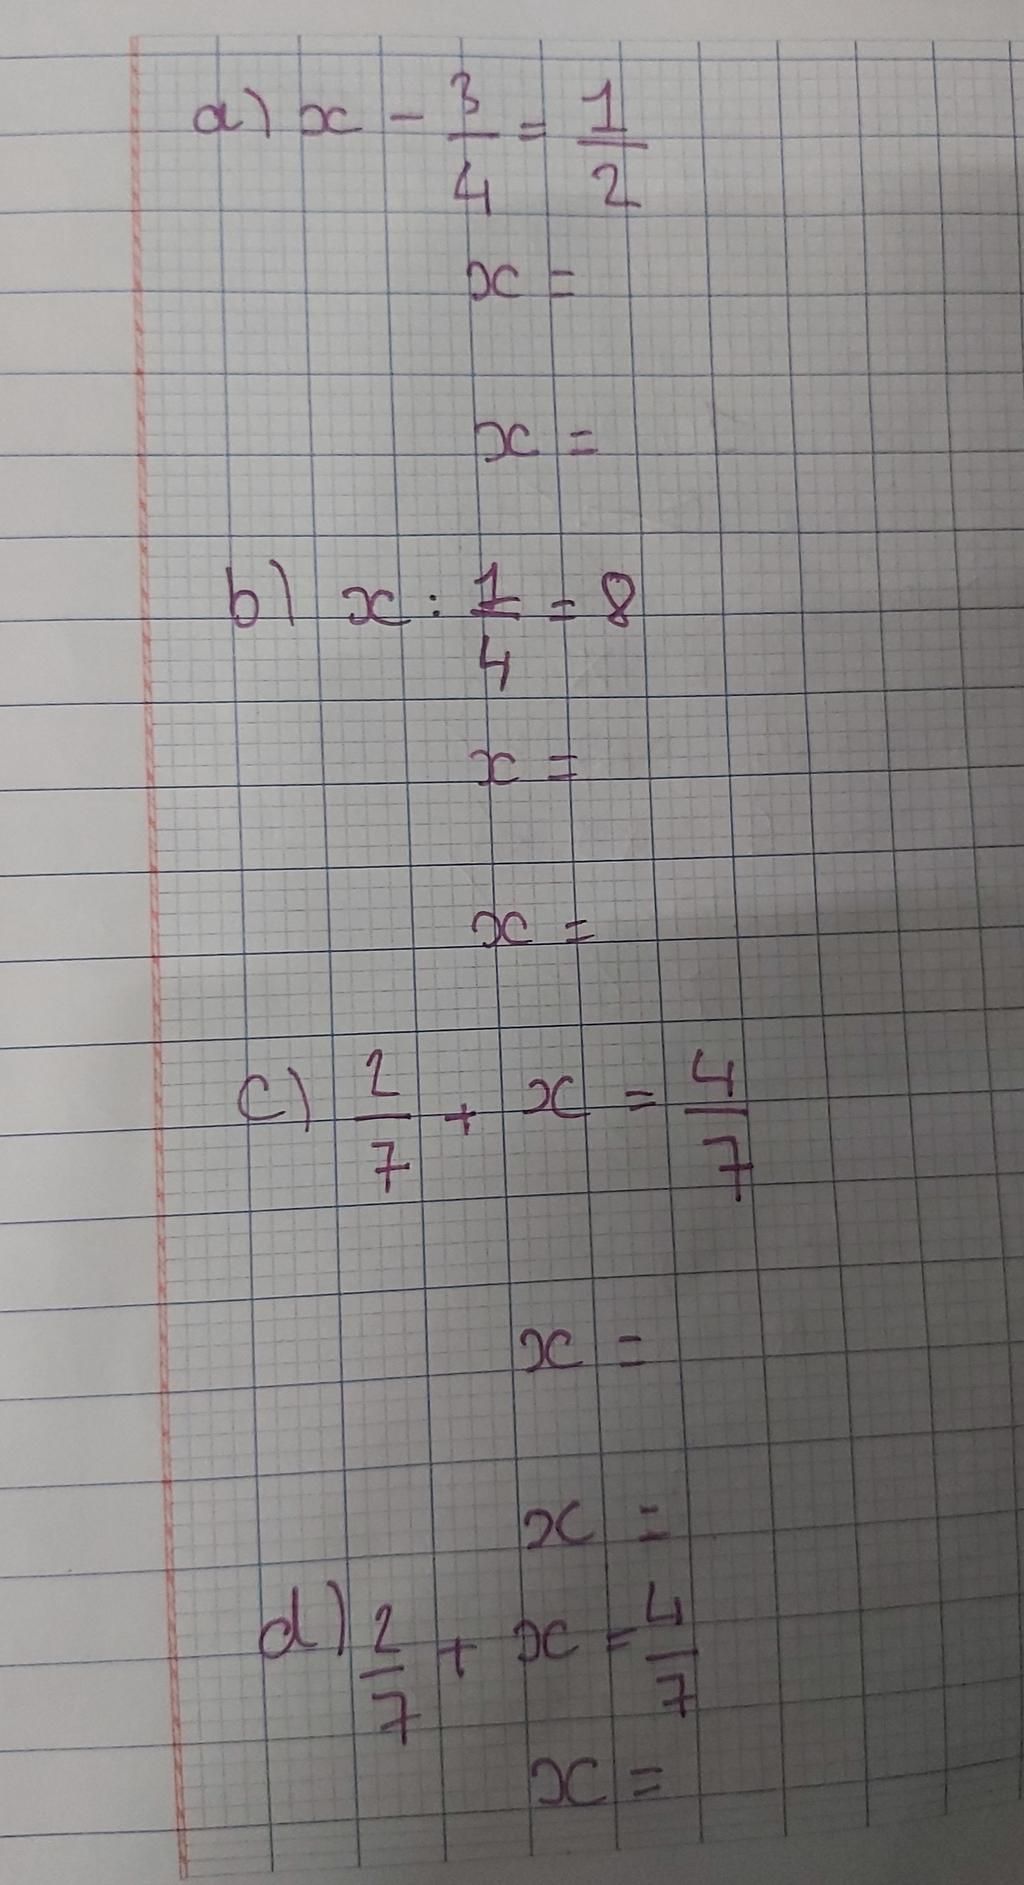 a) x - 3/4 = 1/2
x =
x =
b) x : 1/4 = 8
x =
x =
c) 2/7 + x = 4/7
x =
x =
d) 2/7 + x = 4/7
x =